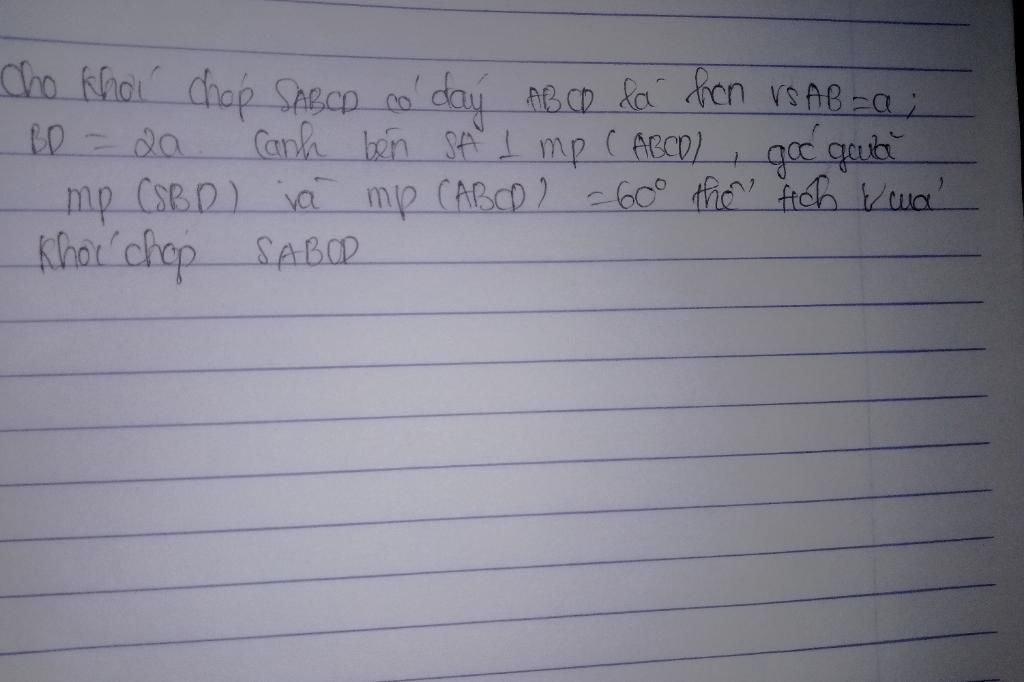 Cho khối chóp SABCD có đáy ABCD là hcn vs AB=a;
BD = 2a. Cạnh bên SA ⊥ mp (ABCD), góc giữa
mp (SBD) và mp (ABCD) = 60° thể tích V của
khối chóp SABCD